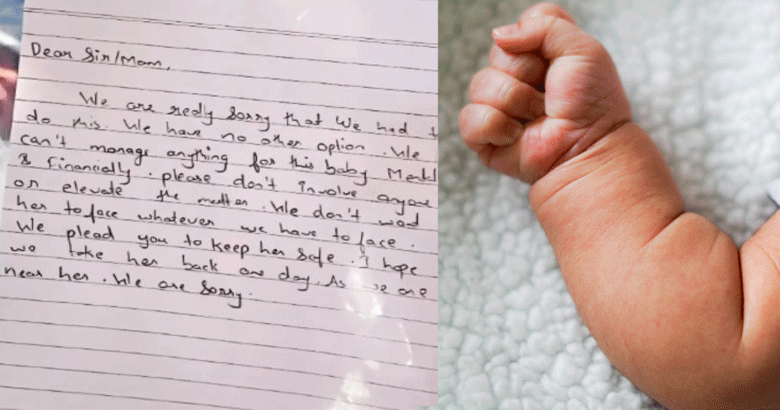 Dear Sir/Mam,
We are redly sorry that we had t
do this. We have no other option. We
can't manage anything for this baby Mentl
& Financially. please don't involve anyone
or elevate the matter. We don't wad
her to face whatever we have to face.
We plead you to keep her safe. I hope
we take her back one day. As we are
near her. We are sorry.